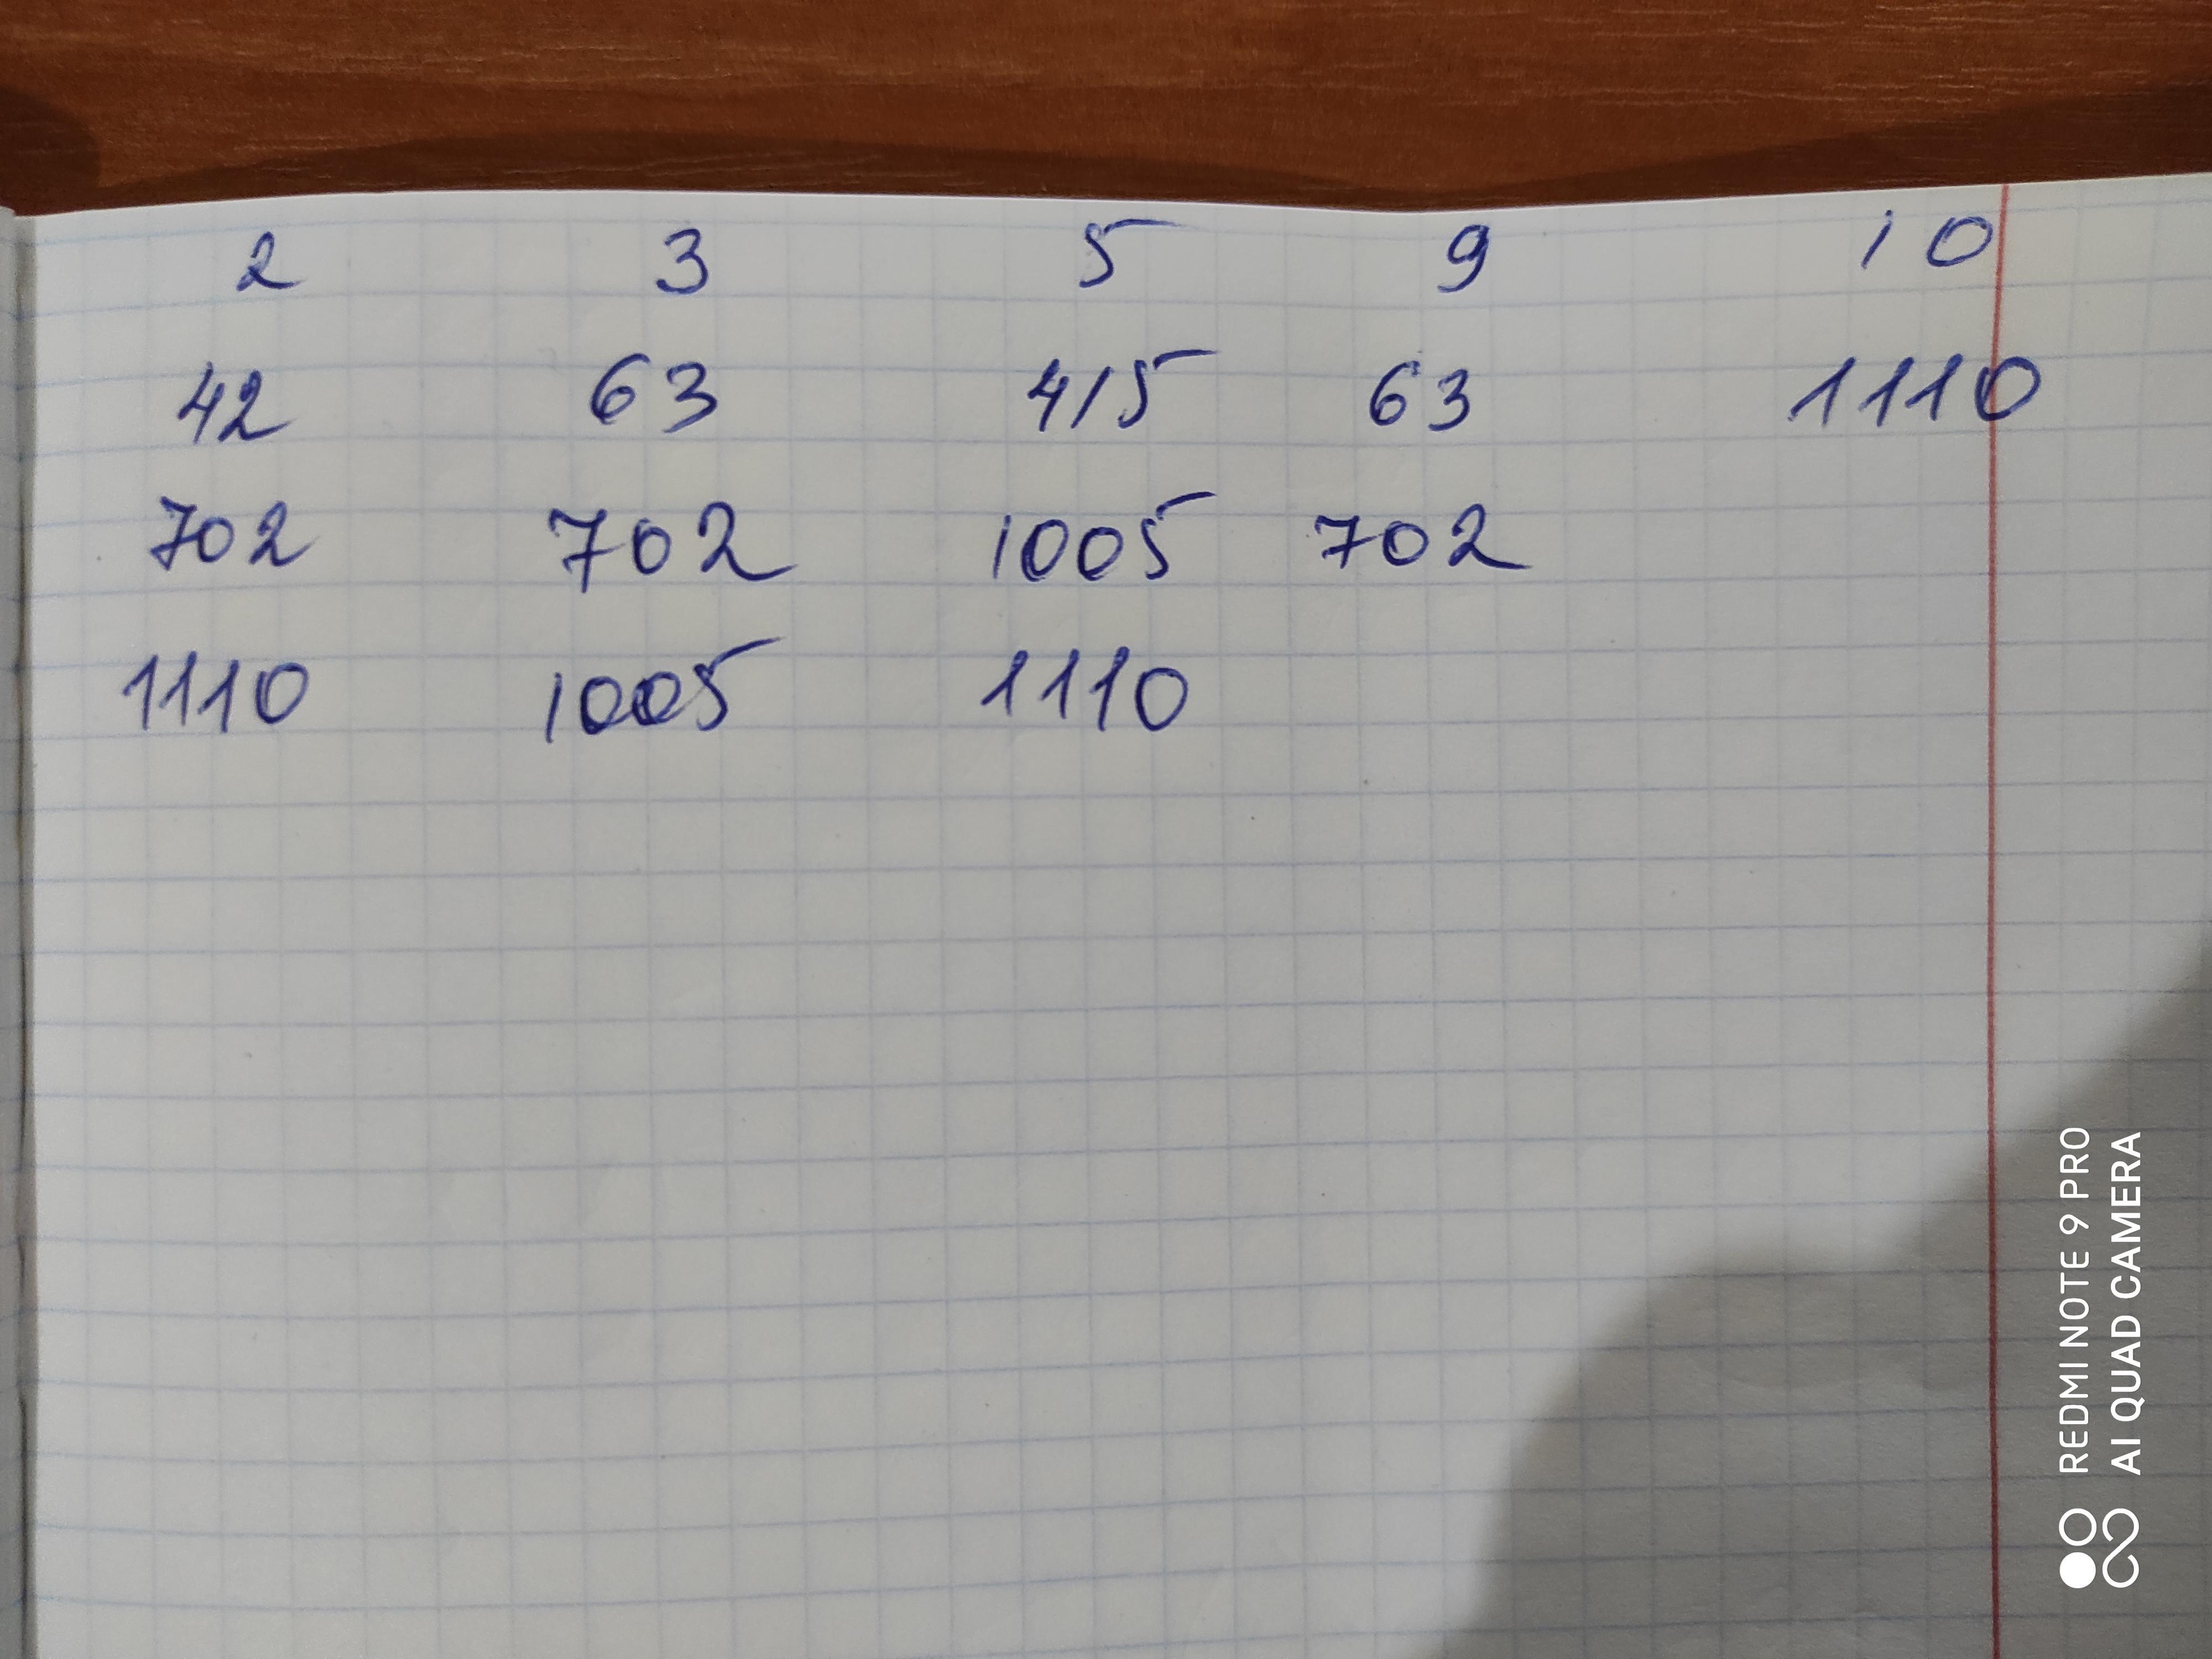 2 3 5 9 10
42 63 415 63 1110
702 702 1005 702
1110 1005 1110
REDMI NOTE 9 PRO
AI QUAD CAMERA